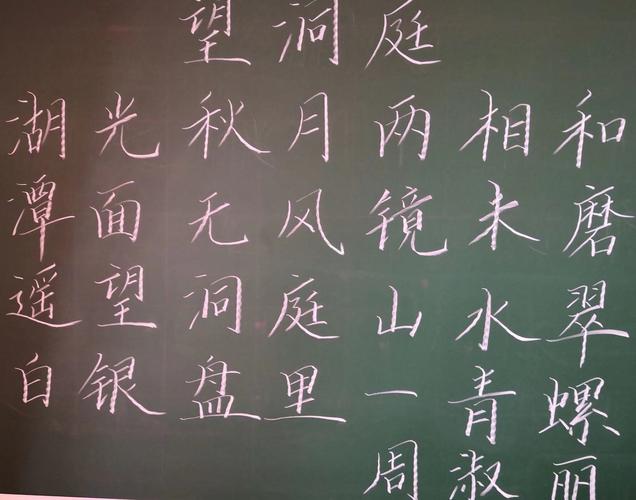 望洞庭
湖光秋月两相和
潭面无风镜未磨
遥望洞庭山水翠
白银盘里一青螺
周淑丽